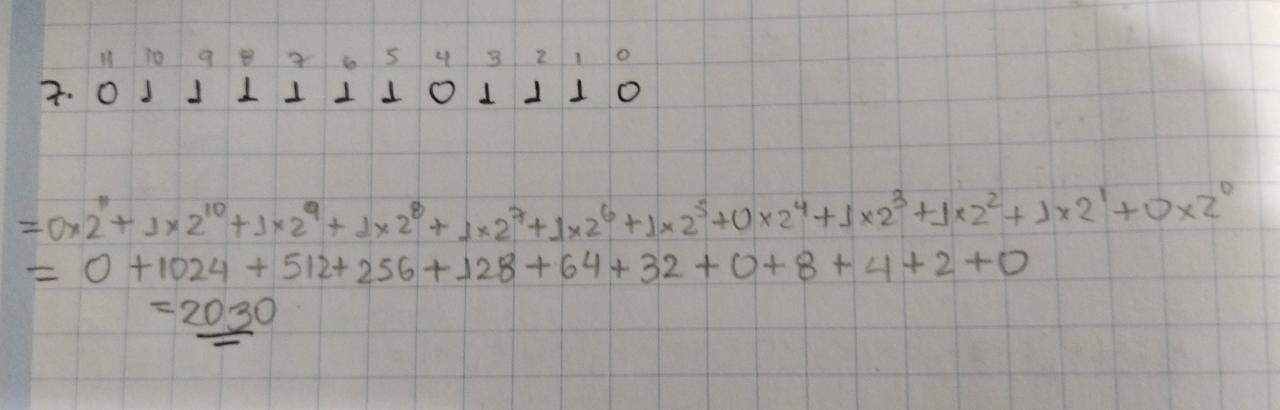 11 10 9 8 7 6 5 4 3 2 1 0
7. 0 1 1 1 1 1 1 0 1 1 1 0
=0×2¹¹ + 1×2¹⁰ + 1×2⁹ + 1×2⁸ + 1×2⁷ + 1×2⁶ + 1×2⁵ + 0×2⁴ + 1×2³ + 1×2² + 1×2¹ + 0×2⁰
= 0 + 1024 + 512 + 256 + 128 + 64 + 32 + 0 + 8 + 4 + 2 + 0
=2030